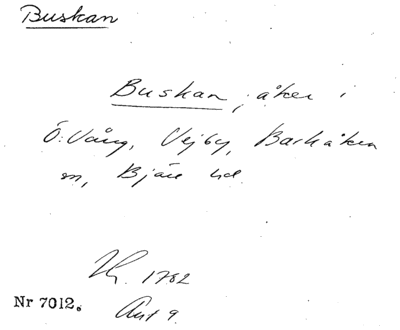 Buskan
Buskan, åker i
Ö. Vång, Vejby, Barkåkra
sn, Bjäre hd.
1782
Nr 7012. Akt 9.